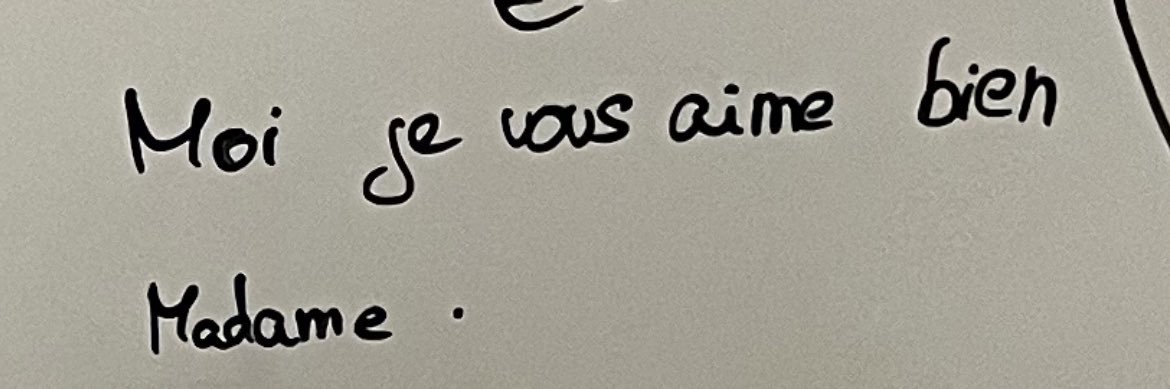 Moi je vous aime bien
Madame.